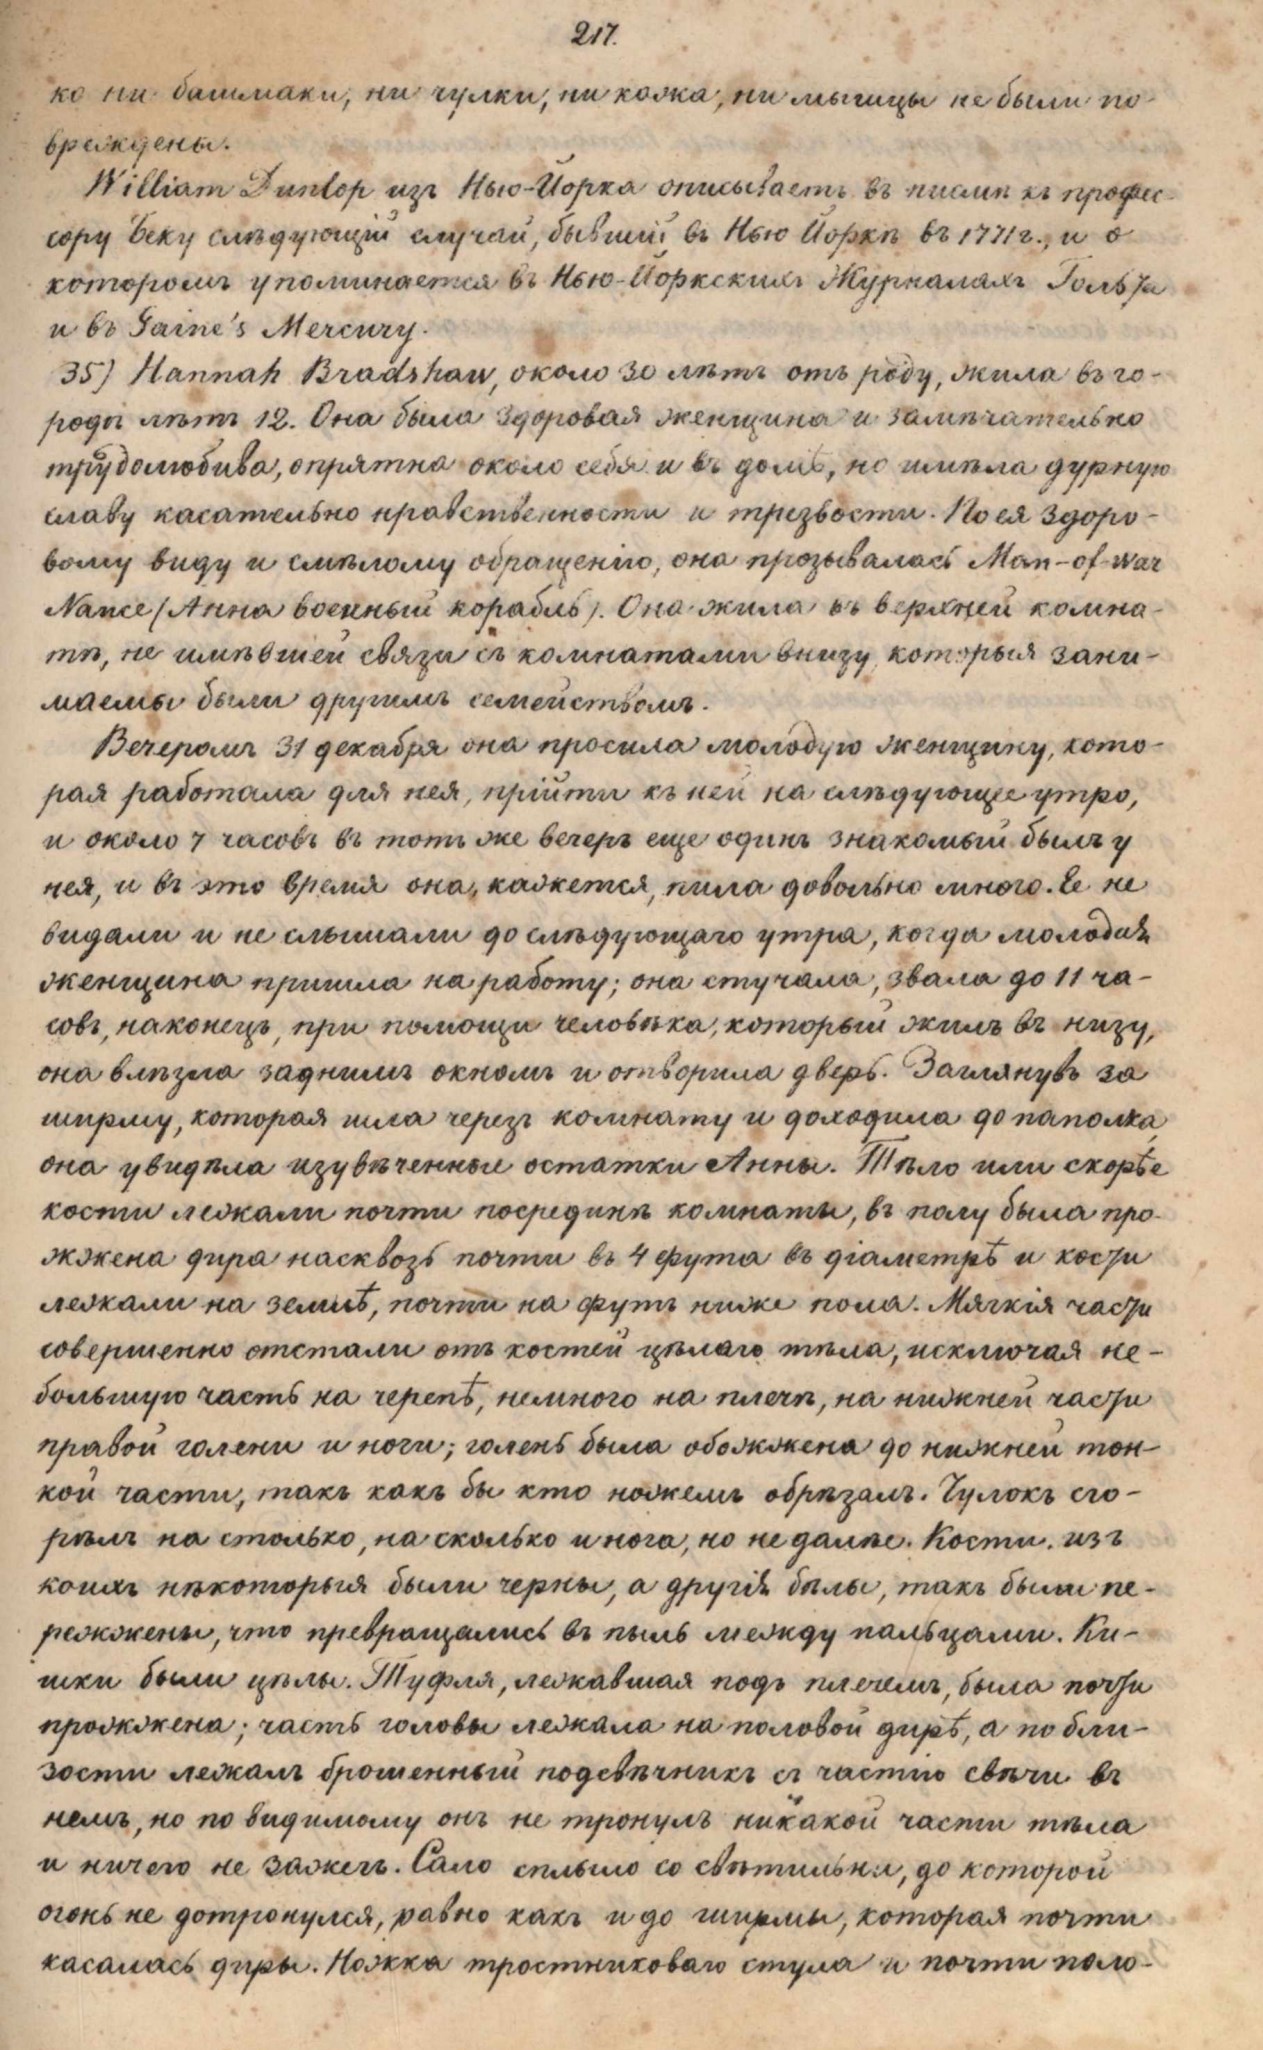 217.
ко ни башмаки, ни чулки, ни кожа, ни мышцы не были по-
врежд​ены.
William Dunlop изъ Нью-Йорка описываетъ въ письмѣ къ профес-
сору Беку слѣдующій случай, бывшій въ Нью Йоркѣ въ 1771 г., и о
которомъ упоминается въ Нью-Йоркскихъ Журналахъ Гольта
и въ Gaine's Mercury.
35) Hannah Bradshaw, около 30 лѣтъ отъ роду, жила въ го-
родѣ лѣтъ 12. Она была здоровая женщина и замѣчательно
трудолюбива, опрятна около себя и въ домѣ, но имѣла дурную
славу касательно нравственности и трезвости. По ея здоро-
вому виду и смѣлому обращенію, она прозывалась Man-of-war
Nance (Анна военный корабль). Она жила въ верхней комна-
тѣ, не имѣвшей связи съ комнатами внизу, которыя зани-
маемы были другимъ семействомъ.
Вечеромъ 31 декабря она просила молодую женщину, кото-
рая работала для нея, прійти къ ней на слѣдующее утро,
и около 7 часовъ въ тотъ же вечеръ еще одинъ знакомый былъ у
нея, и въ это время она, кажется, пила довольно много. Ее не
видали и не слышали до слѣдующаго утра, когда молодая
женщина пришла на работу; она стучала, звала до 11 ча-
совъ, наконецъ, при помощи человѣка, который жилъ въ низу,
она влѣзла заднимъ окномъ и отворила дверь. Заглянувъ за
ширму, которая шла черезъ комнату и доходила до паполка,
она увидѣла изувѣченные остатки Анны. Тѣло или скорѣе
кости лежали почти посрединѣ комнаты, въ полу была про-
жжена дира насквозь почти въ 4 фута въ діаметрѣ и кости
лежали на землѣ, почти на футъ ниже пола. Мягкія части
совершенно отстали отъ костей цѣлаго тѣла, исключая не-
большую часть на черепѣ, немного на плечѣ, на нижней части
правой голени и ноги; голень была обожжена до нижней тон-
кой части, такъ какъ бы кто ножемъ обрѣзалъ. Чулокъ сго-
рѣлъ на столько, на сколько и нога, но не далѣе. Кости. изъ
коихъ нѣкоторыя были черны, а другія бѣлы, такъ были пе-
режжены, что превращались въ пыль между пальцами. Ки-
шки были цѣлы. Туфля, лежавшая подъ плечемъ, была почти
прожжена; часть головы лежала на половой дирѣ, а по бли-
зости лежалъ брошенный подсвѣчникъ съ частію свѣчи въ
немъ, но по видимому онъ не тронулъ никакой части тѣла
и ничего не зажегъ. Сало сплыло со свѣтильни, до которой
огонь не дотронулся, равно какъ и до ширмы, которая почти
касалась диры. Ножка тростниковаго стула и почти поло-